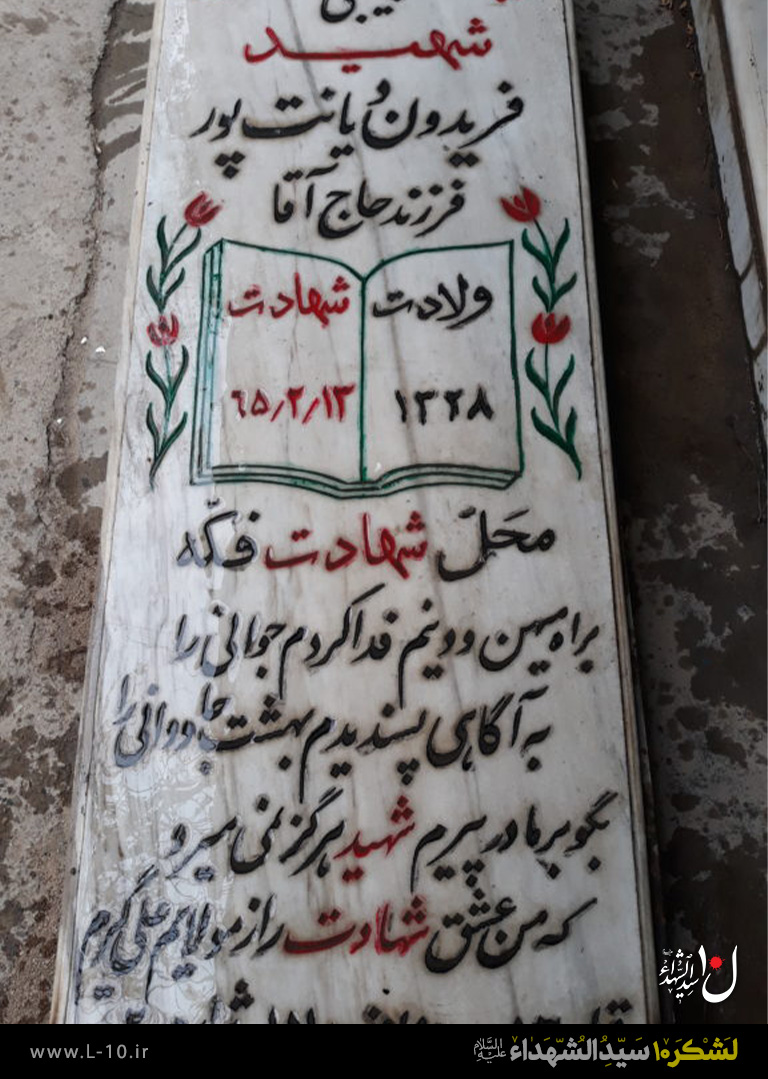 شهید
فریدون دیانت پور
فرزند حاج آقا
ولادت شهادت
۱۳۲۸ ۶۵/۲/۱۳
محلّ شهادت فکّه
براه میهن و دینم فدا کردم جوانی را
به آگاهی پسندیدم بهشت جاودانی را
بگو بر مادر پیرم شهید هرگز نمی میرد
که من عشق شهادت را از مولایم علی گیرم
سیدالشهداء
www.L-10.ir
لشکر۱۰ سیّدالشّهداء علیه السلام